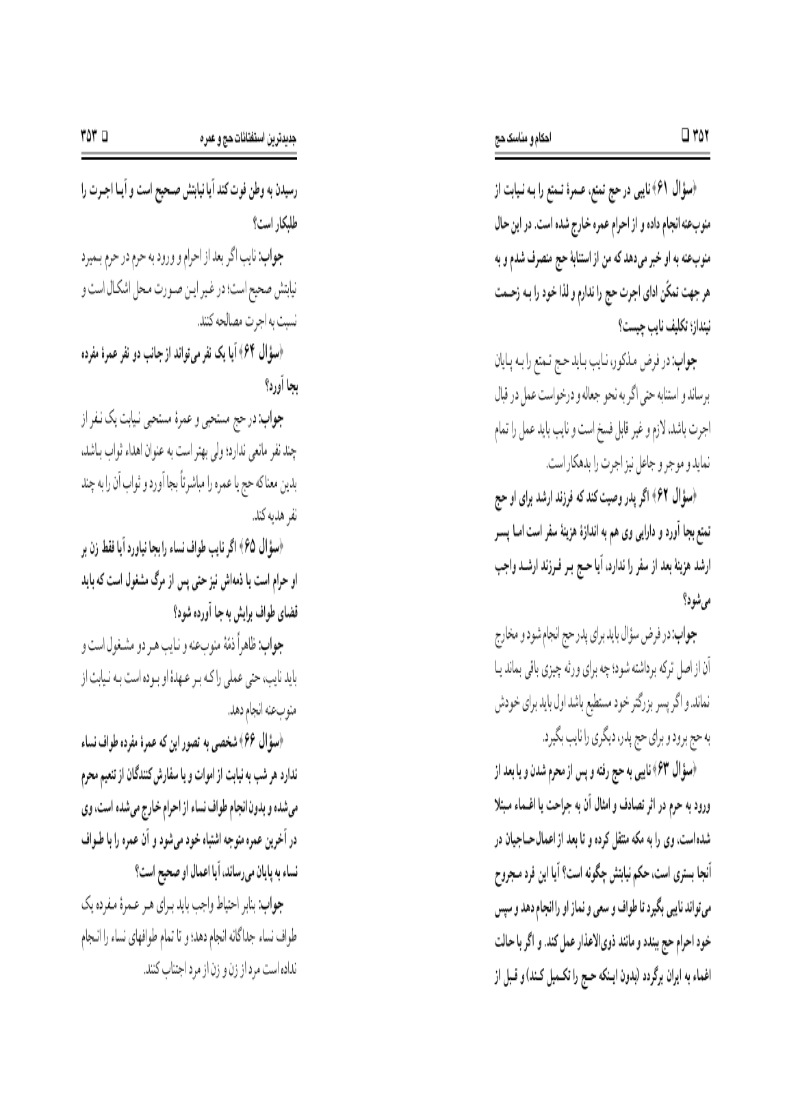 ۳۵۲ □ احکام و مناسک حج
﴿سؤال ۶۱﴾ نایبی در حج تمتع، عمرهٔ تمتع را به نیابت از
منوب‌عنه انجام داده و از احرام عمره خارج شده است. در این حال
منوب‌عنه به او خبر می‌دهد که من از استنابهٔ حج منصرف شدم و به
هر جهت تمکّن ادای اجرت حج را ندارم و لذا خود را به زحمت
نینداز؛ تکلیف نایب چیست؟
جواب: در فرض مذکور، نایب باید حج تمتع را به پایان
برساند و استنابه حتی اگر به نحو جعاله و درخواست عمل در قبال
اجرت باشد، لازم و غیر قابل فسخ است و نایب باید عمل را تمام
نماید و موجر و جاعل نیز اجرت را بدهکار است.
﴿سؤال ۶۲﴾ اگر پدر وصیت کند که فرزند ارشد برای او حج
تمتع بجا آورد و دارایی وی هم به اندازهٔ هزینهٔ سفر است اما پسر
ارشد هزینهٔ بعد از سفر را ندارد، آیا حج بر فرزند ارشد واجب
می‌شود؟
جواب: در فرض سؤال باید برای پدر حج انجام شود و مخارج
آن از اصل ترکه برداشته شود؛ چه برای ورثه چیزی باقی بماند یا
نماند. و اگر پسر بزرگتر خود مستطیع باشد اول باید برای خودش
به حج برود و برای حج پدر، دیگری را نایب بگیرد.
﴿سؤال ۶۳﴾ نایبی به حج رفته و پس از محرم شدن و یا بعد از
ورود به حرم در اثر تصادف و امثال آن به جراحت یا اغماء مبتلا
شده است، وی را به مکه منتقل کرده و تا بعد از اعمال حاجیان در
آنجا بستری است، حکم نیابتش چگونه است؟ آیا این فرد مجروح
می‌تواند نایبی بگیرد تا طواف و سعی و نماز او را انجام دهد و سپس
خود احرام حج ببندد و مانند ذوی‌الاعذار عمل کند. و اگر با حالت
اغماء به ایران برگردد (بدون اینکه حج را تکمیل کند) و قبل از
جدیدترین استفتائات حج و عمره □ ۳۵۳
رسیدن به وطن فوت کند آیا نیابتش صحیح است و آیا اجرت را
طلبکار است؟
جواب: نایب اگر بعد از احرام و ورود به حرم در حرم بمیرد
نیابتش صحیح است؛ در غیر این صورت محل اشکال است و
نسبت به اجرت مصالحه کنند.
﴿سؤال ۶۴﴾ آیا یک نفر می‌تواند از جانب دو نفر عمرهٔ مفرده
بجا آورد؟
جواب: در حج مستحبی و عمرهٔ مستحبی نیابت یک نفر از
چند نفر مانعی ندارد؛ ولی بهتر است به عنوان اهداء ثواب باشد،
بدین معنا که حج یا عمره را مباشرتاً بجا آورد و ثواب آن را به چند
نفر هدیه کند.
﴿سؤال ۶۵﴾ اگر نایب طواف نساء را بجا نیاورد آیا فقط زن بر
او حرام است یا ذمه‌اش نیز حتی پس از مرگ مشغول است که باید
قضای طواف برایش به جا آورده شود؟
جواب: ظاهراً ذمّهٔ منوب‌عنه و نایب هر دو مشغول است و
باید نایب، حتی عملی را که بر عهدهٔ او بوده است به نیابت از
منوب‌عنه انجام دهد.
﴿سؤال ۶۶﴾ شخصی به تصور این که عمرهٔ مفرده طواف نساء
ندارد هر شب به نیابت از اموات و یا سفارش کنندگان از تنعیم محرم
می‌شده و بدون انجام طواف نساء از احرام خارج می‌شده است، وی
در آخرین عمره متوجه اشتباه خود می‌شود و آن عمره را با طواف
نساء به پایان می‌رساند، آیا اعمال او صحیح است؟
جواب: بنابر احتیاط واجب باید برای هر عمرهٔ مفرده یک
طواف نساء جداگانه انجام دهد؛ و تا تمام طوافهای نساء را انجام
نداده است مرد از زن و زن از مرد اجتناب کنند.